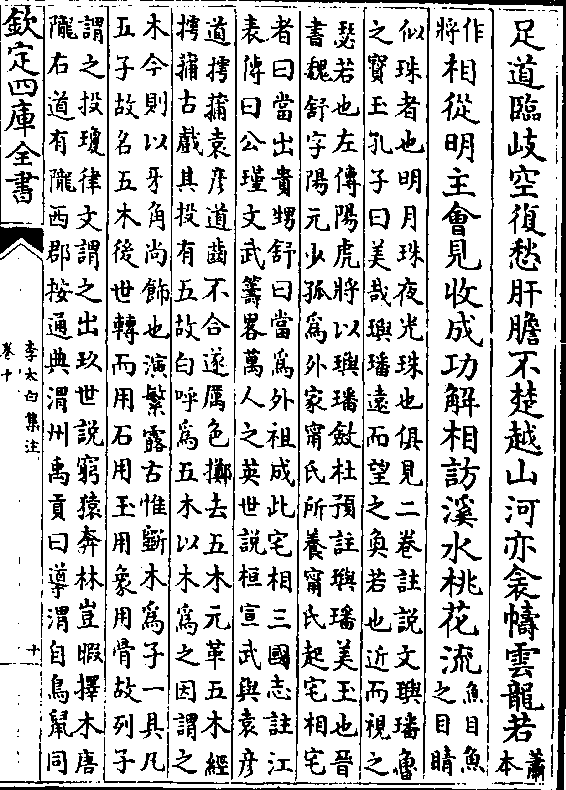 足道臨岐空復愁肝膽不楚越山河亦衾幬雲龍若蕭本
作將相從明主會見收成功解相訪溪水桃花流魚目魚之目睛
似珠者也明月珠夜光珠也俱見二卷註說文璵璠魯
之寳玉孔子曰美哉璵璠遠而望之奐若也近而視之
瑟若也左傳陽虎將以璵璠斂杜預註璵璠美玉也晉
書魏舒字陽元少孤為外家甯氏所養甯氏起宅相宅
者曰當出貴甥舒曰當為外祖成此宅相三國志註江
表傳曰公瑾文武籌畧萬人之英世說桓宣武與袁彥
道摴蒱袁彥道齒不合遂厲色擲去五木元革五木經
摴蒱古戲其投有五故白呼為五木以木為之因謂之
木今則以牙角尚飾也演繁露古惟斵木為子一具凡
五子故名五木後世轉而用石用玉用象用骨故列子
謂之投瓊律文謂之出玖世說窮猿奔林豈暇擇木唐
隴右道有隴西郡按通典渭州禹貢曰導渭自鳥鼠同
欽定四庫全書
李太白集注
卷十
十